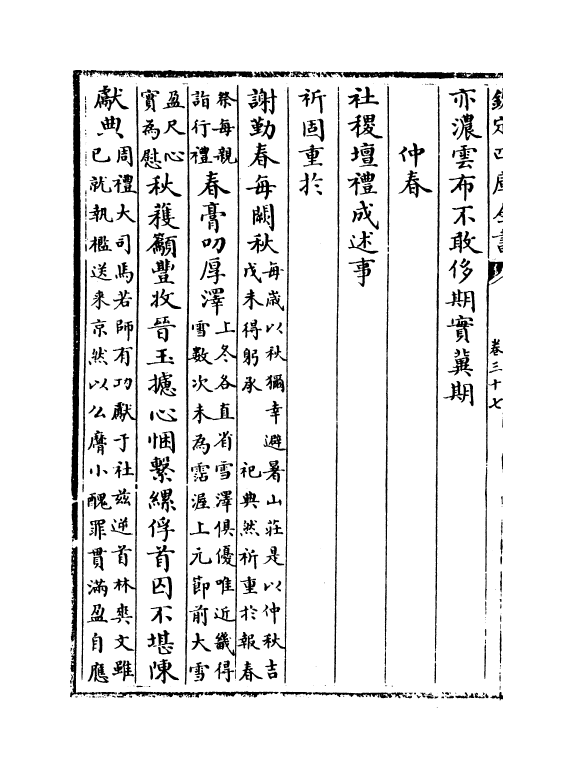 欽定四庫全書
卷三十七
亦濃雲布不敢侈期實冀期
仲春
社稷壇禮成述事
祈固重於
謝勤春每闕秋
每歲以秋獮幸避暑山莊是以仲秋吉
戊未得躬承 祀典然祈重於報春
祭每親
詣行禮
春膏叨厚澤
上冬各直省雪澤俱優唯近畿得
雪數次未為霑渥上元節前大雪
盈尺心
實為慰
秋穫籲豐收晉玉攄心悃繫縲俘首囚不堪陳
獻典
周禮大司馬若師有功獻于社茲逆首林爽文雖
已就執檻送來京然以么麿小醜罪貫滿盈自應